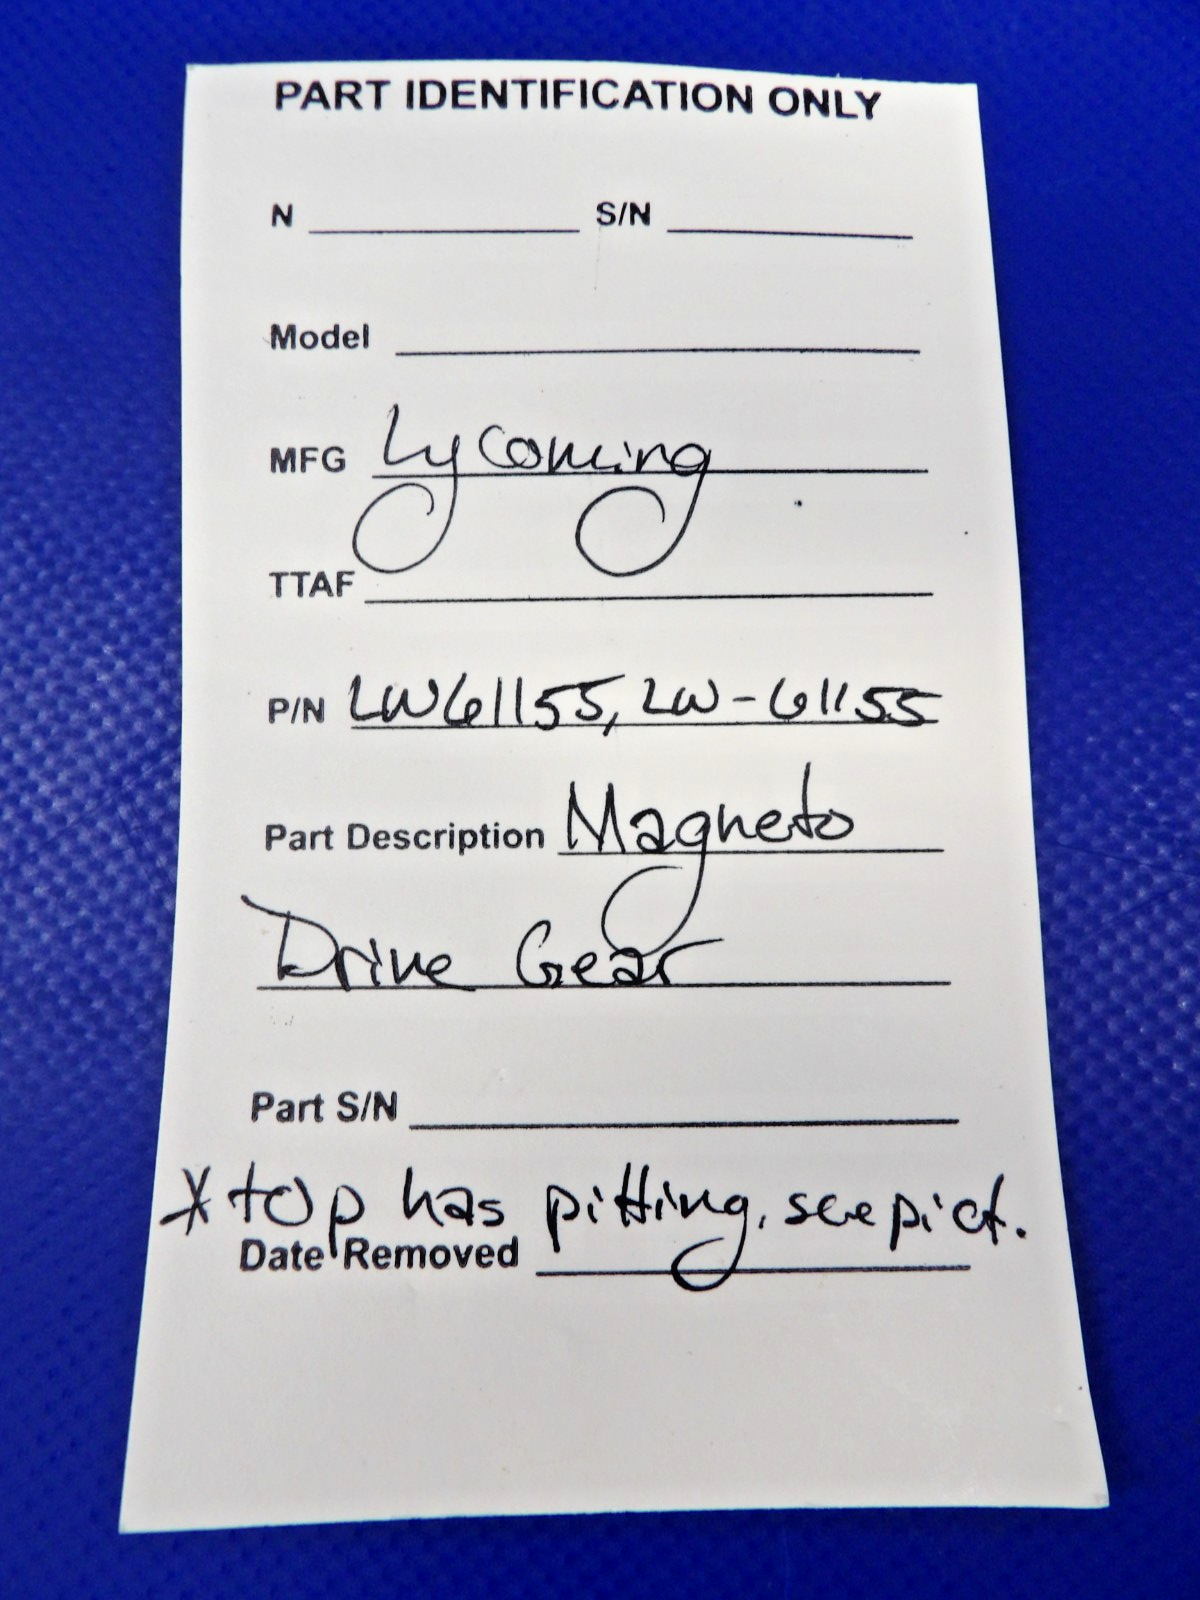 PART IDENTIFICATION ONLY
N S/N
Model
MFG Lycoming
TTAF
P/N LW61155, LW-61155
Part Description Magneto
Drive Gear
Part S/N
*top has pitting, see pict.
Date Removed